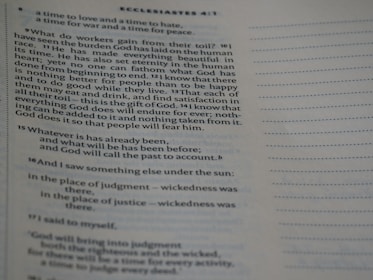 ECCLESIASTES 4:1
8 a time to love and a time to hate,
a time for war and a time for peace.
9 What do workers gain from their toil? 10 I
have seen the burden God has laid on the human
race. 11 He has made everything beautiful in
its time. He has also set eternity in the human
heart; yet no one can fathom what God has
done from beginning to end. 12 I know that there
is nothing better for people than to be happy
and to do good while they live. 13 That each of
them may eat and drink, and find satisfaction in
all their toil—this is the gift of God. 14 I know that
everything God does will endure for ever; noth-
ing can be added to it and nothing taken from it.
God does it so that people will fear him.
15 Whatever is has already been,
and what will be has been before;
and God will call the past to account. b
16 And I saw something else under the sun:
in the place of judgment – wickedness was
there,
in the place of justice – wickedness was
there.
17 I said to myself,
'God will bring into judgment
both the righteous and the wicked,
for there will be a time for every activity,
a time to judge every deed.'